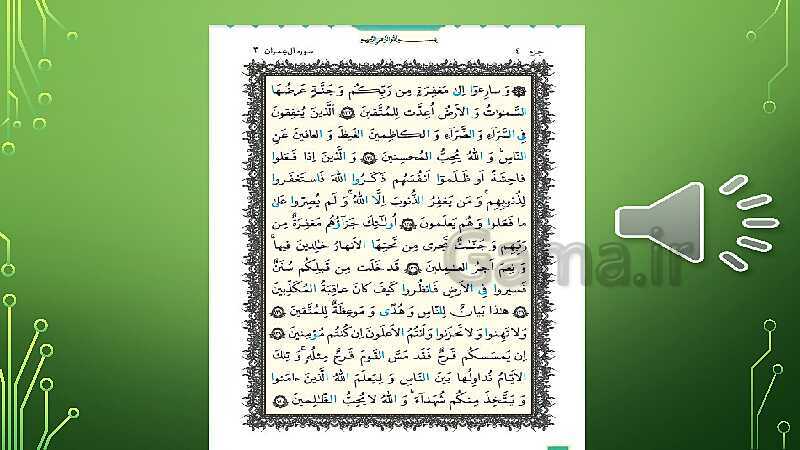 جزء ٤
سوره آل عمران ٣
وَ سارِعوا اِلىٰ مَغفِرَةٍ مِن رَبِّكُم وَ جَنَّةٍ عَرضُهَا
السَّمٰوٰتُ وَ الاَرضُ اُعِدَّت لِلمُتَّقينَ ١٣٣ اَلَّذينَ يُنفِقونَ
فِى السَّرّآءِ وَ الضَّرّآءِ وَ الكاظِمينَ الغَيظَ وَ العافينَ عَنِ
النّاسِ وَ اللهُ يُحِبُّ المُحسِنينَ ١٣٤ وَ الَّذينَ اِذا فَعَلوا
فاحِشَةً اَو ظَلَموٓا اَنفُسَهُم ذَكَرُوا اللهَ فَاستَغفَروا
لِذُنوبِهِم وَ مَن يَغفِرُ الذُّنوبَ اِلَّا اللهُ وَ لَم يُصِرّوا عَلىٰ
ما فَعَلوا وَ هُم يَعلَمونَ ١٣٥ اُولٰٓئِكَ جَزآؤُهُم مَغفِرَةٌ مِن
رَبِّهِم وَ جَنّٰتٌ تَجرى مِن تَحتِهَا الاَنهارُ خٰلِدينَ فيها
وَ نِعمَ اَجرُ العٰمِلينَ ١٣٦ قَد خَلَت مِن قَبلِكُم سُنَنٌ
فَسيروا فِى الاَرضِ فَانظُروا كَيفَ كانَ عاقِبَةُ المُكَذِّبينَ
١٣٧ هٰذا بَيانٌ لِلنّاسِ وَ هُدًى وَ مَوعِظَةٌ لِلمُتَّقينَ ١٣٨
وَ لا تَهِنوا وَ لا تَحزَنوا وَ اَنتُمُ الاَعلَونَ اِن كُنتُم مُؤمِنينَ ١٣٩
اِن يَمسَسكُم قَرحٌ فَقَد مَسَّ القَومَ قَرحٌ مِثلُهُ وَ تِلكَ
الاَيّامُ نُداوِلُها بَينَ النّاسِ وَ لِيَعلَمَ اللهُ الَّذينَ ءامَنوا
وَ يَتَّخِذَ مِنكُم شُهَدآءَ وَ اللهُ لا يُحِبُّ الظّٰلِمينَ ١٤٠
Gama.ir